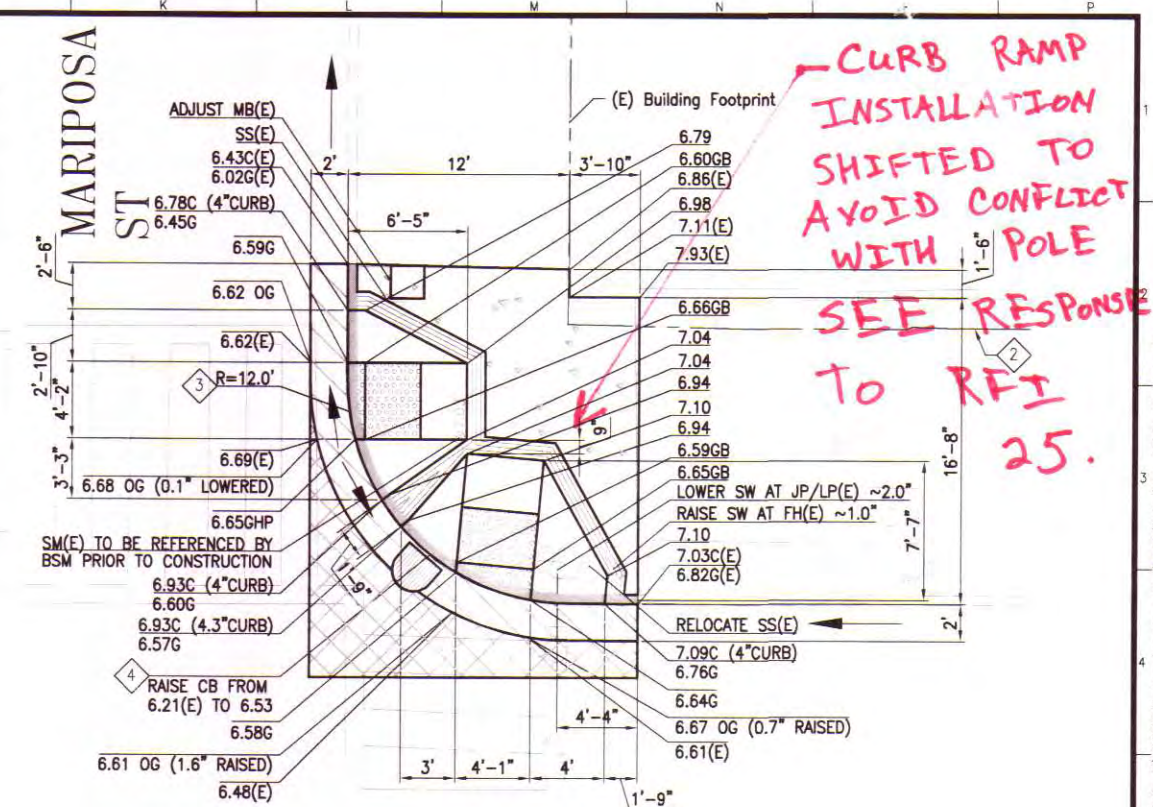 K
L
M
N
P
MARIPOSA
ST
ADJUST MB(E)
SS(E)
6.43C(E)
6.02G(E)
6.78C (4"CURB)
6.45G
6.59G
6.62 OG
6.62(E)
3
R=12.0'
6.69(E)
6.68 OG (0.1" LOWERED)
6.65GHP
SM(E) TO BE REFERENCED BY
BSM PRIOR TO CONSTRUCTION
6.93C (4"CURB)
6.60G
6.93C (4.3"CURB)
6.57G
4
RAISE CB FROM
6.21(E) TO 6.53
6.58G
6.61 OG (1.6" RAISED)
6.48(E)
2'-6"
2'-10"
4'-2"
3'-3"
2'
12'
3'-10"
6'-5"
(E) Building Footprint
6.79
6.60GB
6.86(E)
6.98
7.11(E)
7.93(E)
6.66GB
7.04
7.04
6.94
7.10
6.94
6.59GB
6.65GB
LOWER SW AT JP/LP(E) ~2.0"
RAISE SW AT FH(E) ~1.0"
7.10
7.03C(E)
6.82G(E)
RELOCATE SS(E)
7.09C (4"CURB)
6.76G
6.64G
6.67 OG (0.7" RAISED)
6.61(E)
9"
1'-9"
3'
4'-1"
4'
4'-4"
1'-9"
1'-6"
2
16'-8"
7'-7"
2'
CURB RAMP
INSTALLATION
SHIFTED TO
AVOID CONFLICT
WITH POLE
SEE RESPONSE
TO RFI
25.
1
2
3
4